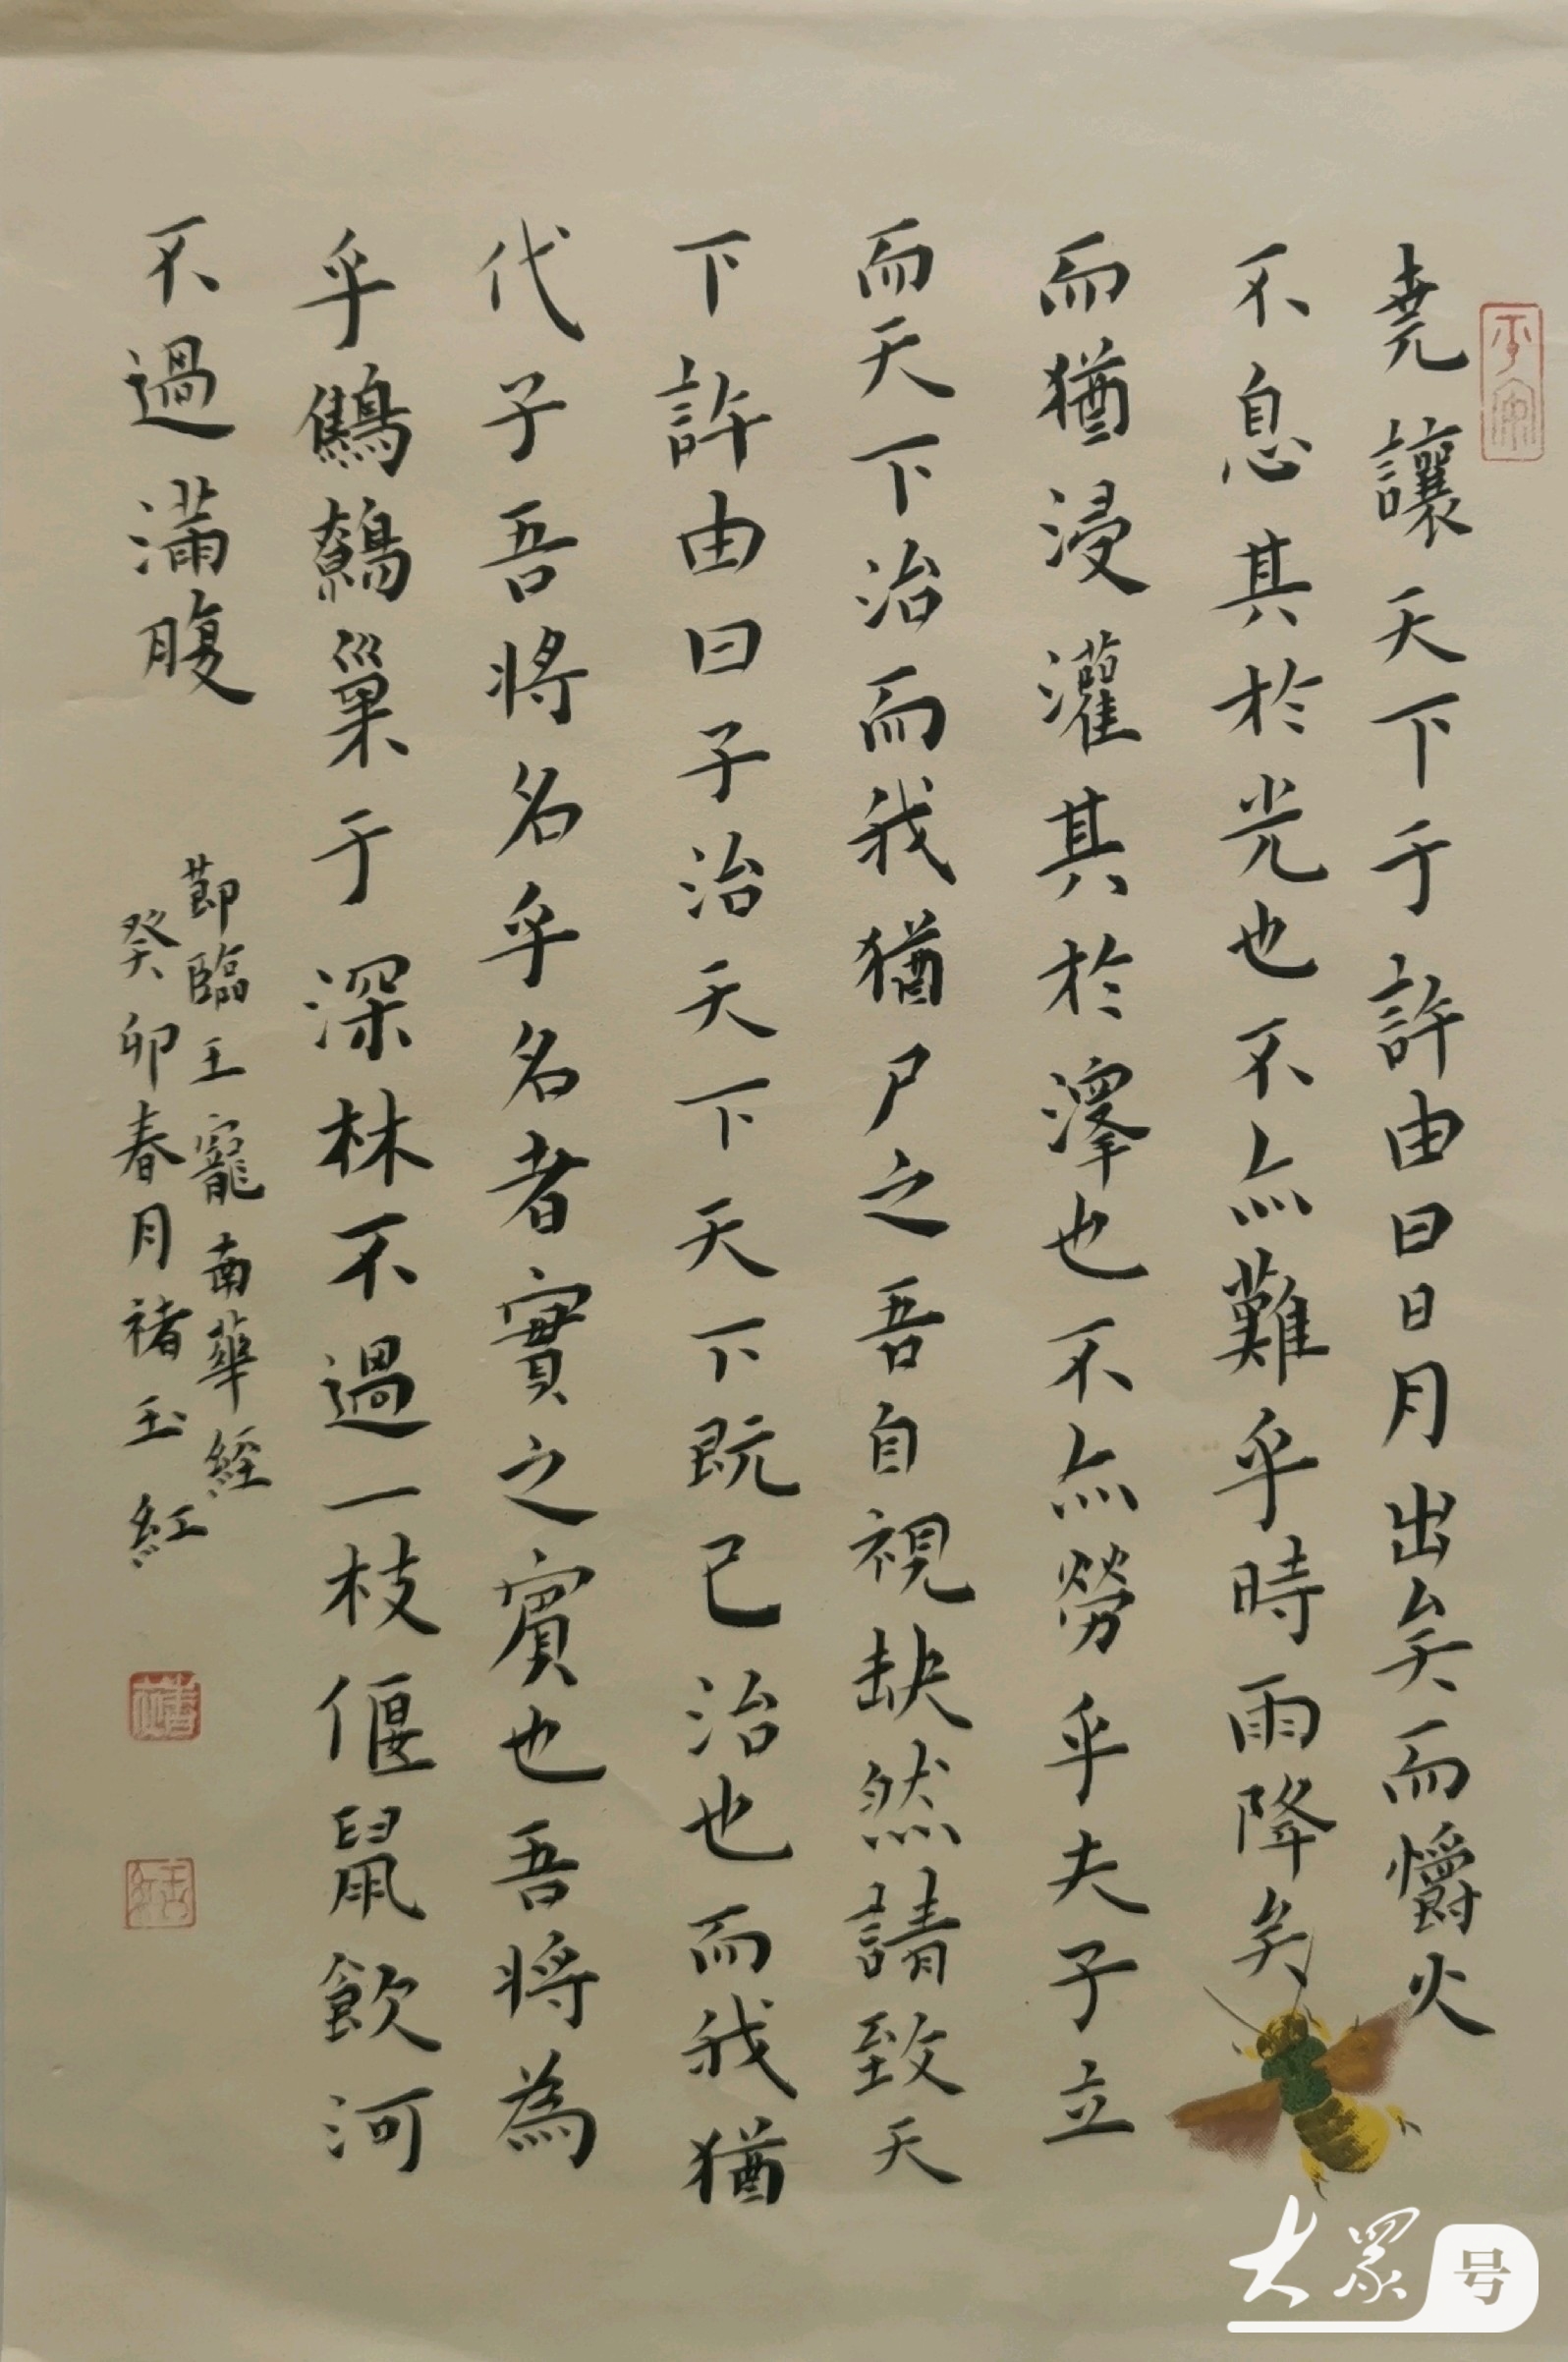 堯讓天下于許由曰日月出矣而爝火
不息其於光也不亦難乎時雨降矣
而猶浸灌其於澤也不亦勞乎夫子立
而天下治而我猶尸之吾自視缺然請致天
下許由曰子治天下天下既已治也而我猶
代子吾將名乎名者實之賓也吾將為
乎鷦鷯巢于深林不過一枝偃鼠飲河
不過滿腹
節臨王寵南華經
癸卯春月褚玉紅
大眾号